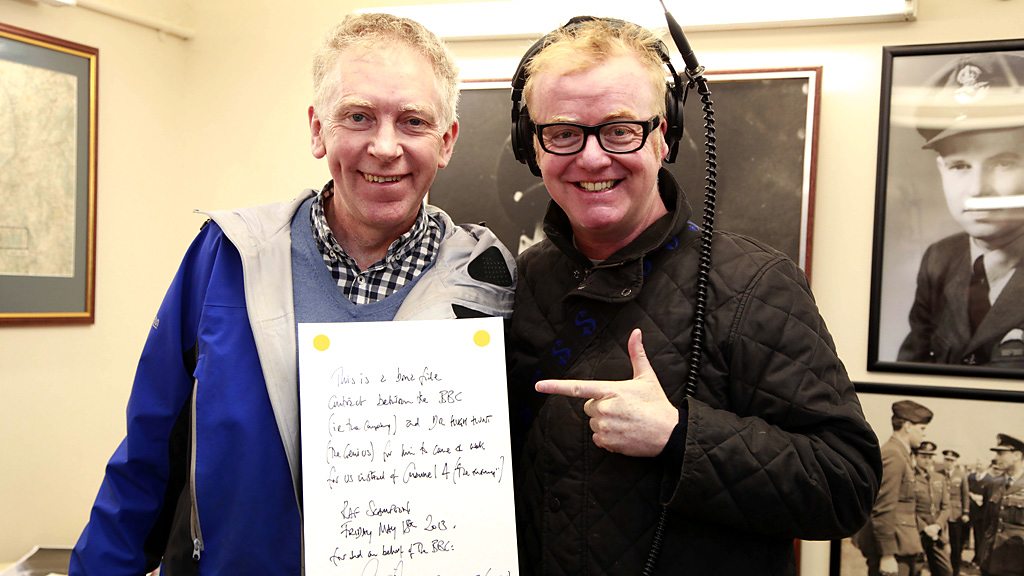 This is a bona fide
contract between the BBC
(i.e the company) and DR HUGH HUNT
(The Genius) for him to come & work
for us instead of Channel 4 (the enemy)
RAF SCAMPTON
FRIDAY MAY 2013.
for and on behalf of the BBC: